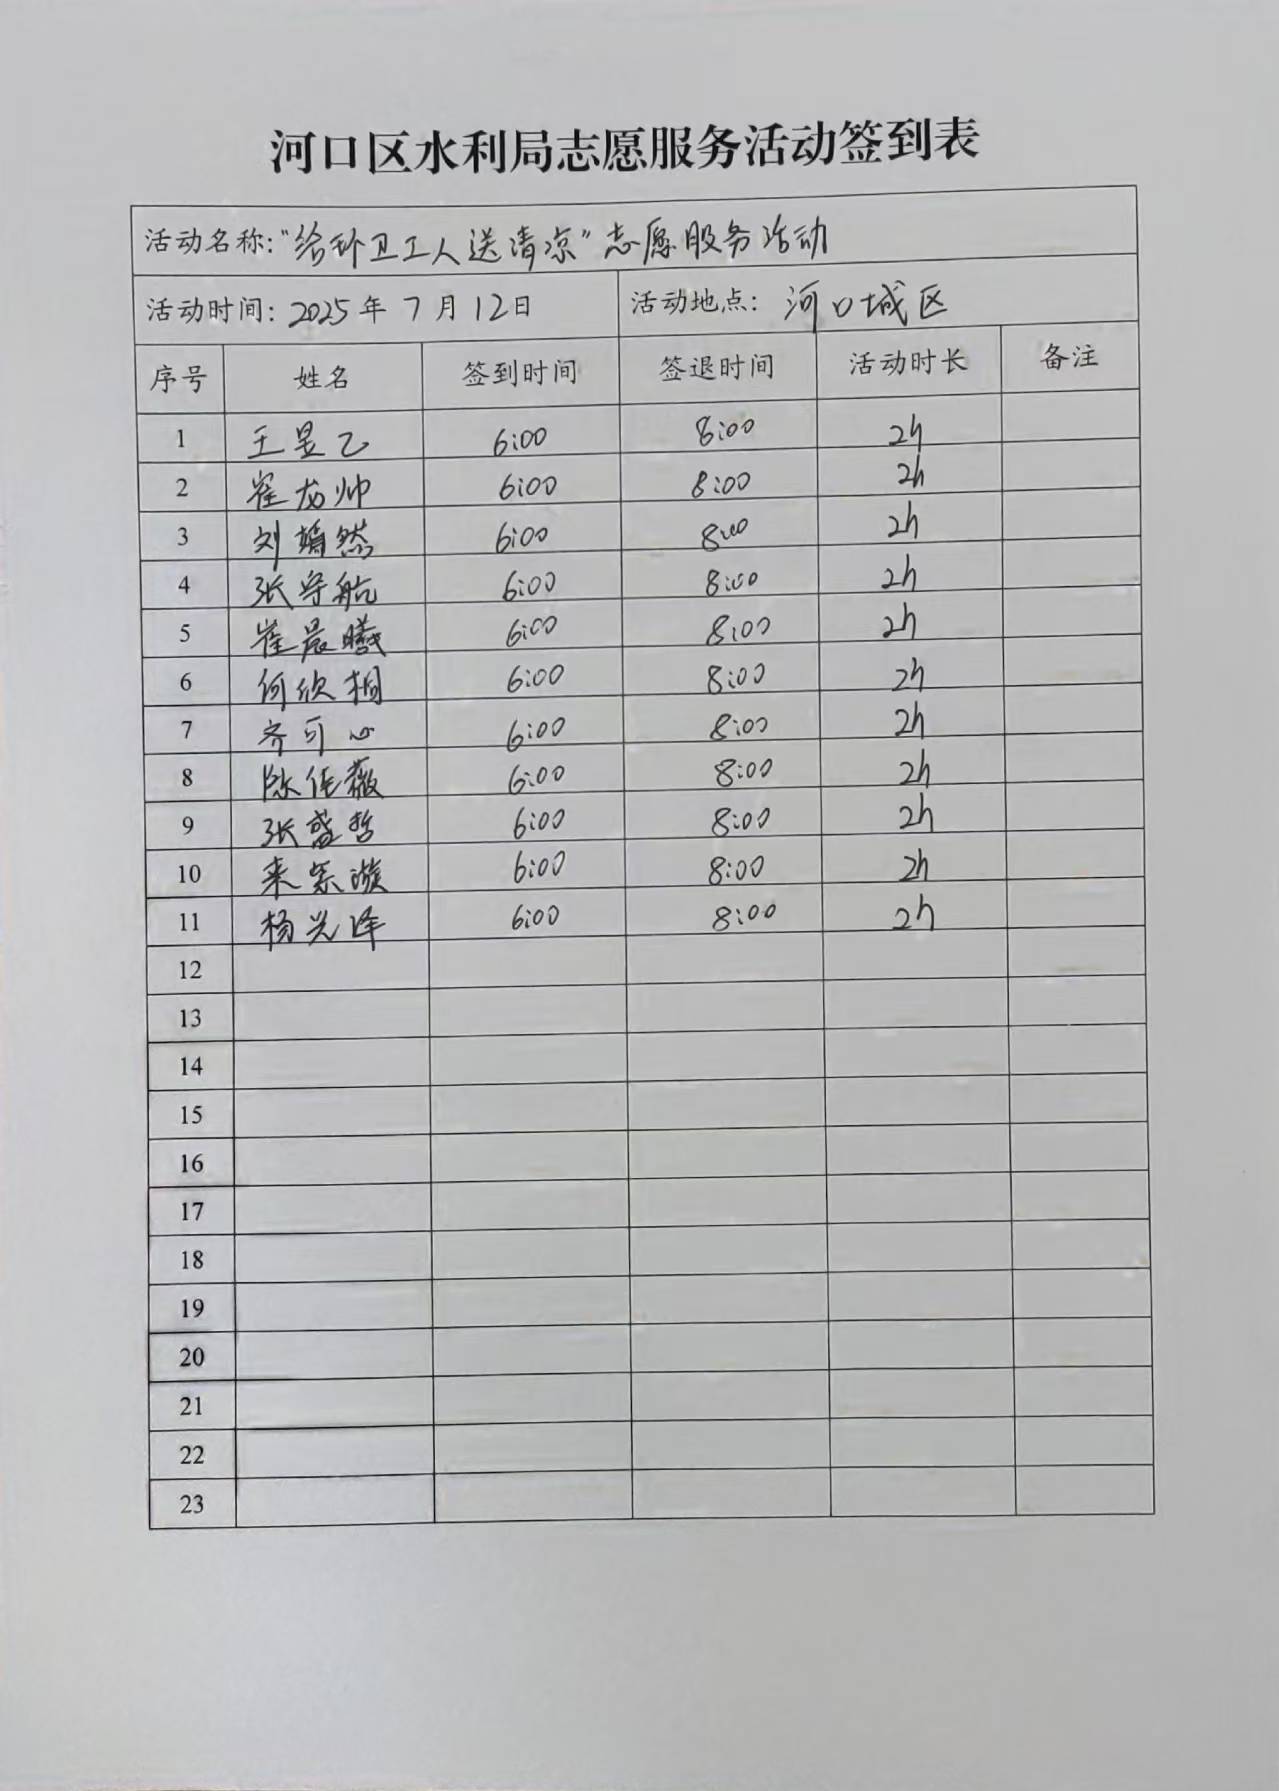 河口区水利局志愿服务活动签到表
活动名称:"给环卫工人送清凉"志愿服务活动
活动时间: 2025年7月12日 活动地点: 河口城区
序号 姓名 签到时间 签退时间 活动时长 备注
1 王昱乙 6:00 8:00 2h
2 崔龙帅 6:00 8:00 2h
3 刘嫣然 6:00 8:00 2h
4 张宇航 6:00 8:00 2h
5 崔晨曦 6:00 8:00 2h
6 何欣桐 6:00 8:00 2h
7 齐可心 6:00 8:00 2h
8 陈佳薇 6:00 8:00 2h
9 张盛哲 6:00 8:00 2h
10 6:00 8:00 2h
11 杨光泽 6:00 8:00 2h
12
13
14
15
16
17
18
19
20
21
22
23